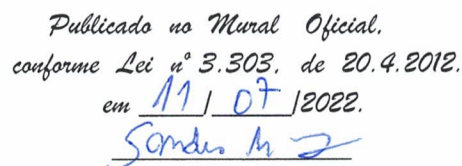 Publicado no Mural Oficial,
conforme Lei nº 3.303, de 20.4.2012.
em 11 / 07 /2022.